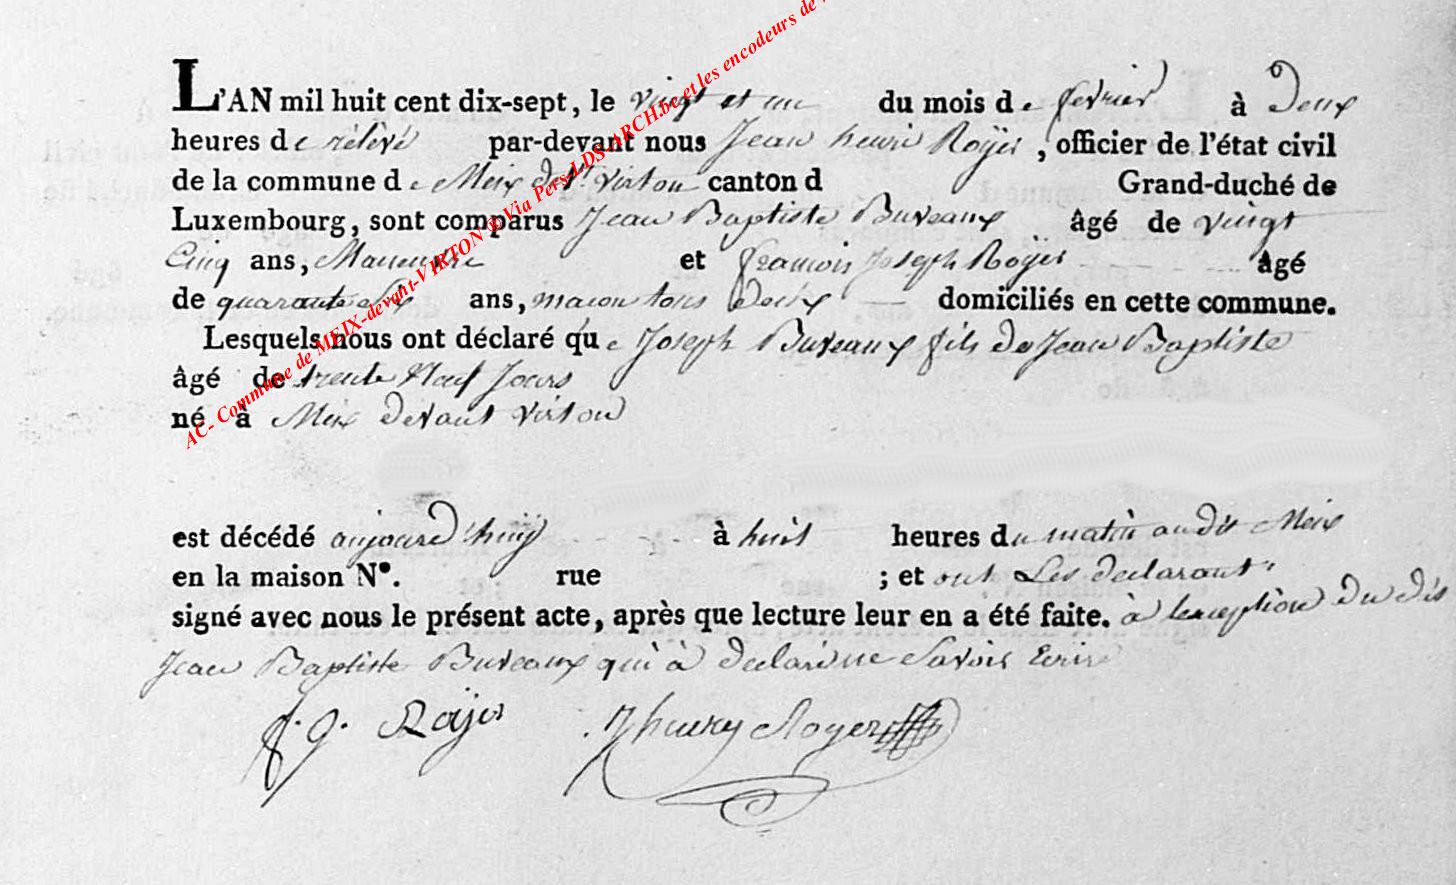 L'AN mil huit cent dix-sept, le vingt et un du mois de fevrier à Deux
heures de rélévé par-devant nous Jean henri Roÿer, officier de l'état civil
de la commune de Meix devt virton canton d Grand-duché de
Luxembourg, sont comparus Jean Baptiste Buveaux âgé de vingt
Cinq ans, Manœuvre et francois Joseph Roÿer âgé
de quarante ans, macon tous Deux domiciliés en cette commune.
Lesquels nous ont déclaré que Joseph Buveaux fils de Jean Baptiste
âgé de trente Neuf Jours
né à Meix devant virton
est décédé aujourd'huÿ à huit heures du matin audit Meix
en la maison N°. rue ; et ont Les declarant
signé avec nous le présent acte, après que lecture leur en a été faite. à lexception du dit
Jean Baptiste Buveaux qui à declaré ne Savoir Ecrire
f. J. Roÿer Jhenry Royer
AC- Commune de MEIX-devant-VIRTON © Via Pers-LDS-ARCH.be et les encodeurs de